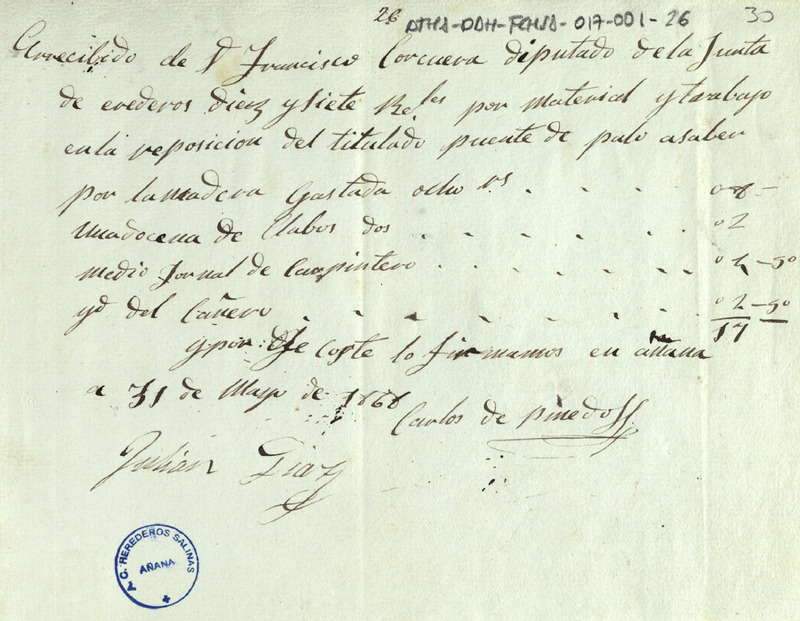 26 ATHA-DAH-FCHSA-017-001-26 30
Arrecibido de D Francisco Corcuera diputado de la Junta
de erederos Diez y siete Rs les por material y trabajo
en la reposicion del titulado puente de palo a saber
por la madera Gastada ocho rs . . . 08 -
una docena de Clabos dos . . . . . . 02
medio Jornal de Carpintero . . . . . . 04 - 50
yd del Cañero . . . . . . . 02 - 50
17
y por qe Coste lo firmamos en añana
a 31 de Mayo de 1868
Carlos de Pinedo
Julian Diaz
A. C. HEREDEROS SALINAS
AÑANA